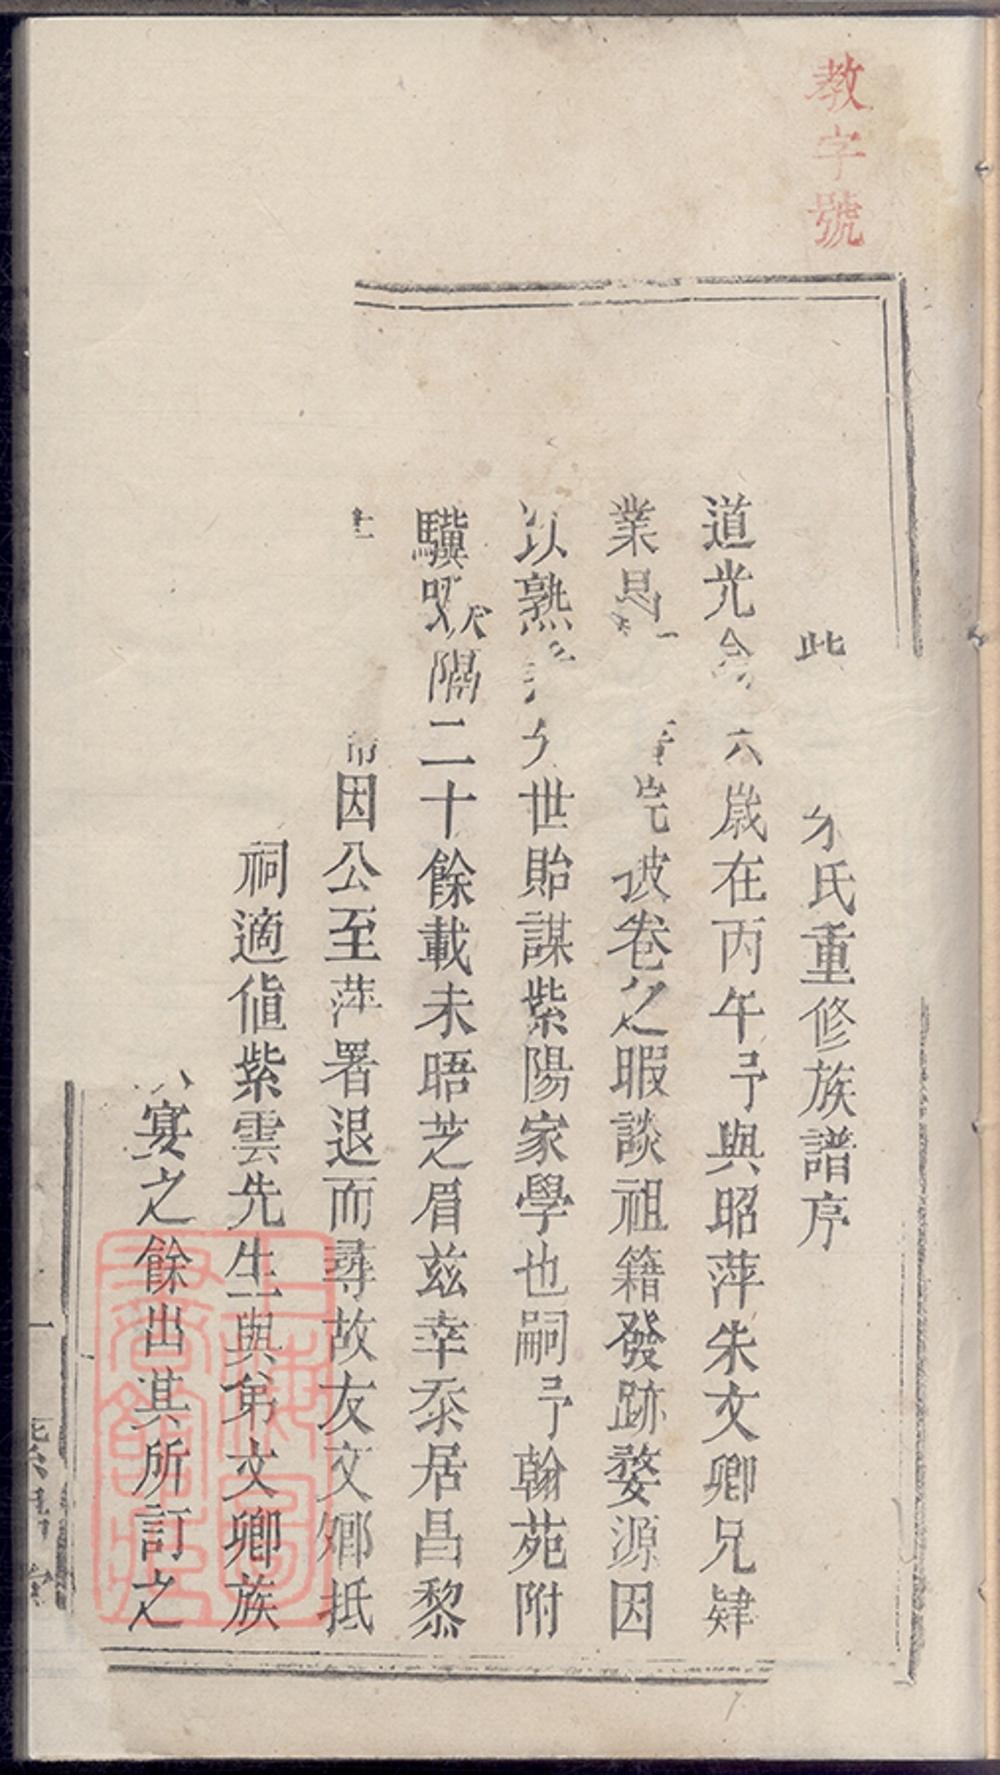 教字號
此 氏重修族譜序
道光 六歲在丙午予與昭萍朱文卿兄肄
業 披卷之暇談祖籍發跡婺源因
以熟 世貽謀紫陽家學也嗣予翰苑附
驥 隔二十餘載未晤芝眉兹幸忝居昌黎
因公至萍署退而尋故友文卿抵
祠適値紫雲先生與弟文卿族
宴之餘出其所訂之
一
上海圖書館藏